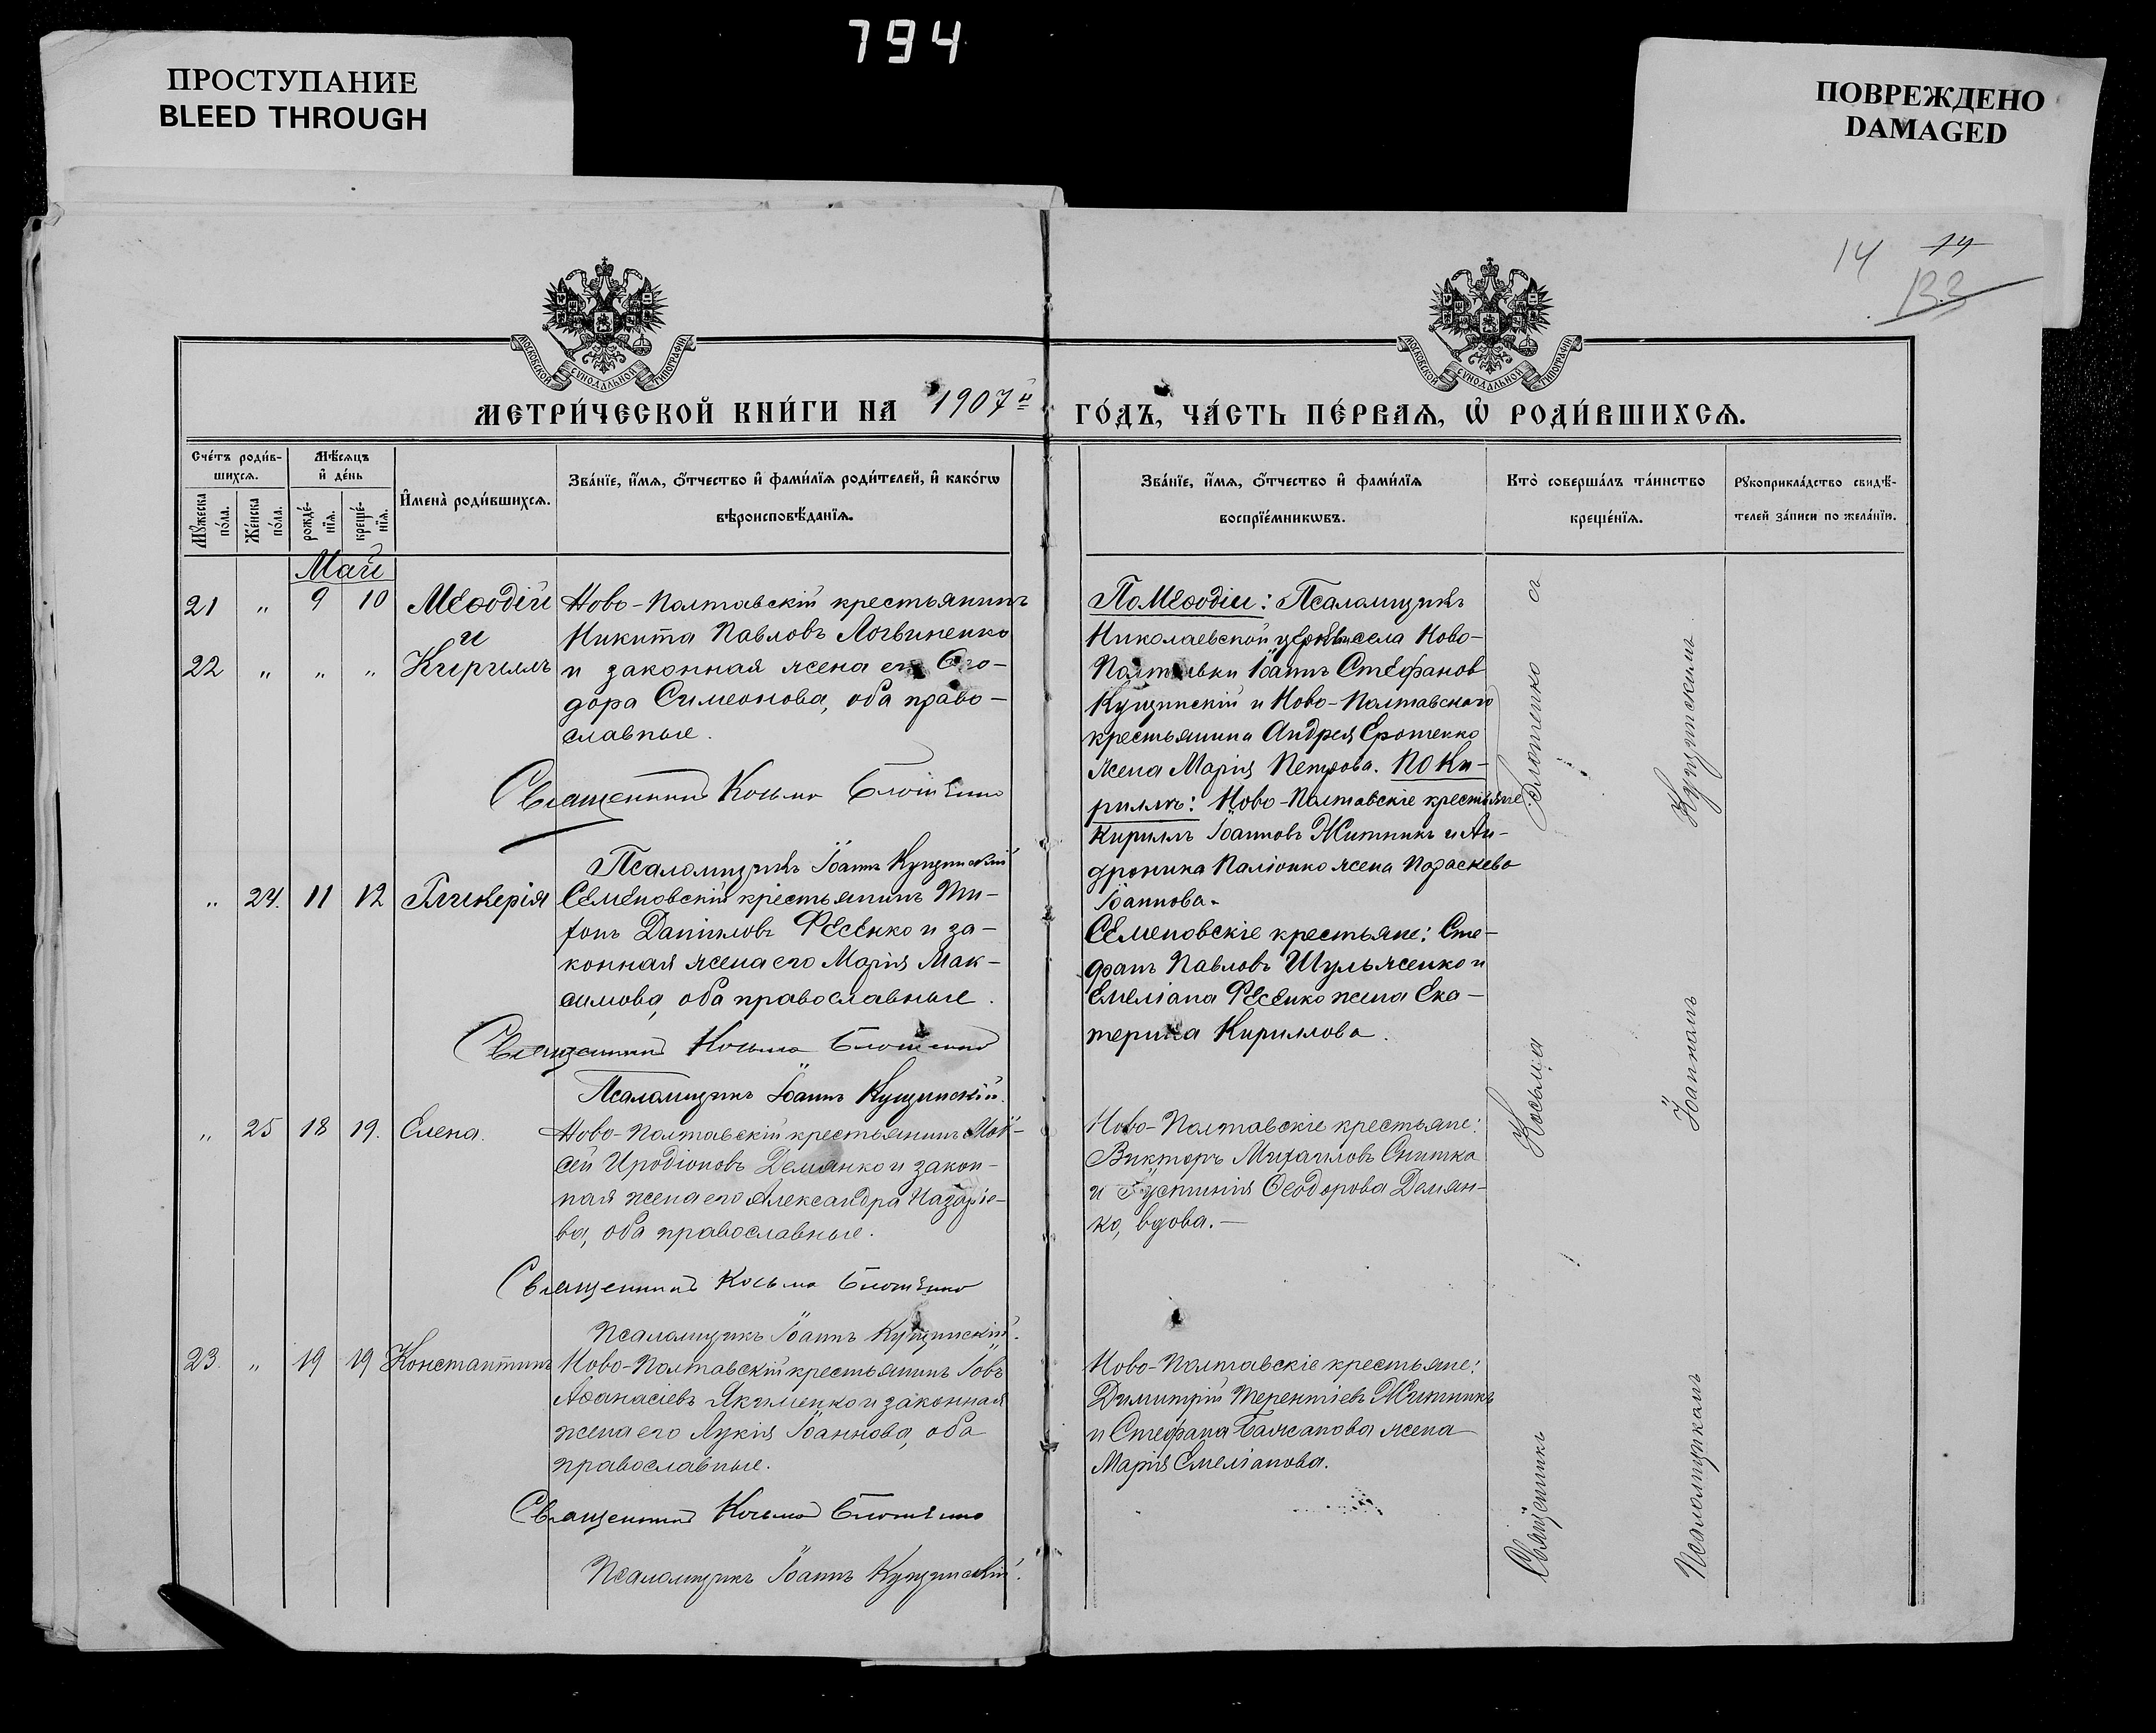 794
ПРОСТУПАНИЕ
BLEED THROUGH
ПОВРЕЖДЕНО
DAMAGED
14 14
133
МОСКОВСКОЙ СѴНОДАЛЬНОЙ ТИПОГРАФІИ
МОСКОВСКОЙ СѴНОДАЛЬНОЙ ТИПОГРАФІИ
МЕТРИ́ЧЕСКОЙ КНИ́ГИ НА 1907й ГО́ДЪ, ЧА́СТЬ ПЕ́РВАѦ, Ѡ҆ РОДИ́ВШИХСѦ.
Сче́тъ роди́в-
шихсѧ.
Мꙋ́жеска по́ла.
Же́нска по́ла.
Мѣ́сѧцъ
и҆ де́нь
рожде́-
нїѧ.
креще́-
нїѧ.
И҆мена̀ роди́вшихсѧ.
Зва́нїе, и҆́мѧ, ѻ҆́тчество и҆ фами́лїѧ роди́телей, и҆ како́гѡ
вѣроисповѣ́данїѧ.
Зва́нїе, и҆́мѧ, ѻ҆́тчество и҆ фами́лїѧ
воспрїе́мникѡвъ.
Кто̀ соверша́лъ та́инство
креще́нїѧ.
Рꙋкоприкла́дство свидѣ́-
телей за́писи по жела́нїю.
Май
21 " 9 10 Меѳодій
и
22 " " " Кириллъ
Ново-Полтавскій крестьянинъ
Никита Павловъ Логвиненко
и законная жена его Ѳео-
дора Симеонова, оба право-
славные.
Священникъ Косьма
Псаломщикъ Іоаннъ Кущинскій
По Меѳодіи: Псаломщикъ
Николаевской церкви села Ново-
Полтавки Іоаннъ Стефанов
Кущинскій и Ново-Полтавского
крестьянина Андрея Еротенко
жена Марія Петрова. По Ки-
риллѣ: Ново-Полтавскіе крестьяне
Кириллъ Іоанновъ Житникъ и Ан-
дроника Паліонко жена Параскева
Іоаннова.
" 24. 11 12 Гликерія
Семеновскій крестьянинъ Ти-
хонъ Даніиловъ Фесенко и за-
конная жена его Марія Мак-
симова, оба православные.
Священникъ Косьма
Псаломщикъ Іоаннъ Кущинскій.
Семеновскіе крестьяне: Сте-
фанъ Павловъ Шульженко и
Емеліана Фесенко жена Ека-
терина Кириллова.
" 25 18 19. Елена.
Ново-Полтавскій крестьянинъ Мой-
сей Иродіоновъ Демянко и закон-
ная жена его Александра Назаріе-
ва, оба православные.
Священникъ Косьма
Псаломщикъ Іоаннъ Кущинскій.
Ново-Полтавскіе крестьяне:
Викторъ Михаиловъ Снитка
и Іустинія Ѳеодорова Демян-
ко, вдова.—
23. " 19 19 Константинъ
Ново-Полтавскій крестьянинъ Іовъ
Аѳанасіевъ Якименко и законная
жена его Лукія Іоаннова, оба
православные.
Священникъ Косьма
Псаломщикъ Іоаннъ Кущинскій.
Ново-Полтавскіе крестьяне:
Димитрій Терентіевъ Житникъ
и Стефана Бажанова жена
Марія Емеліанова.
Священникъ Косьма съ
Псаломщикомъ Іоанномъ Кущинскимъ